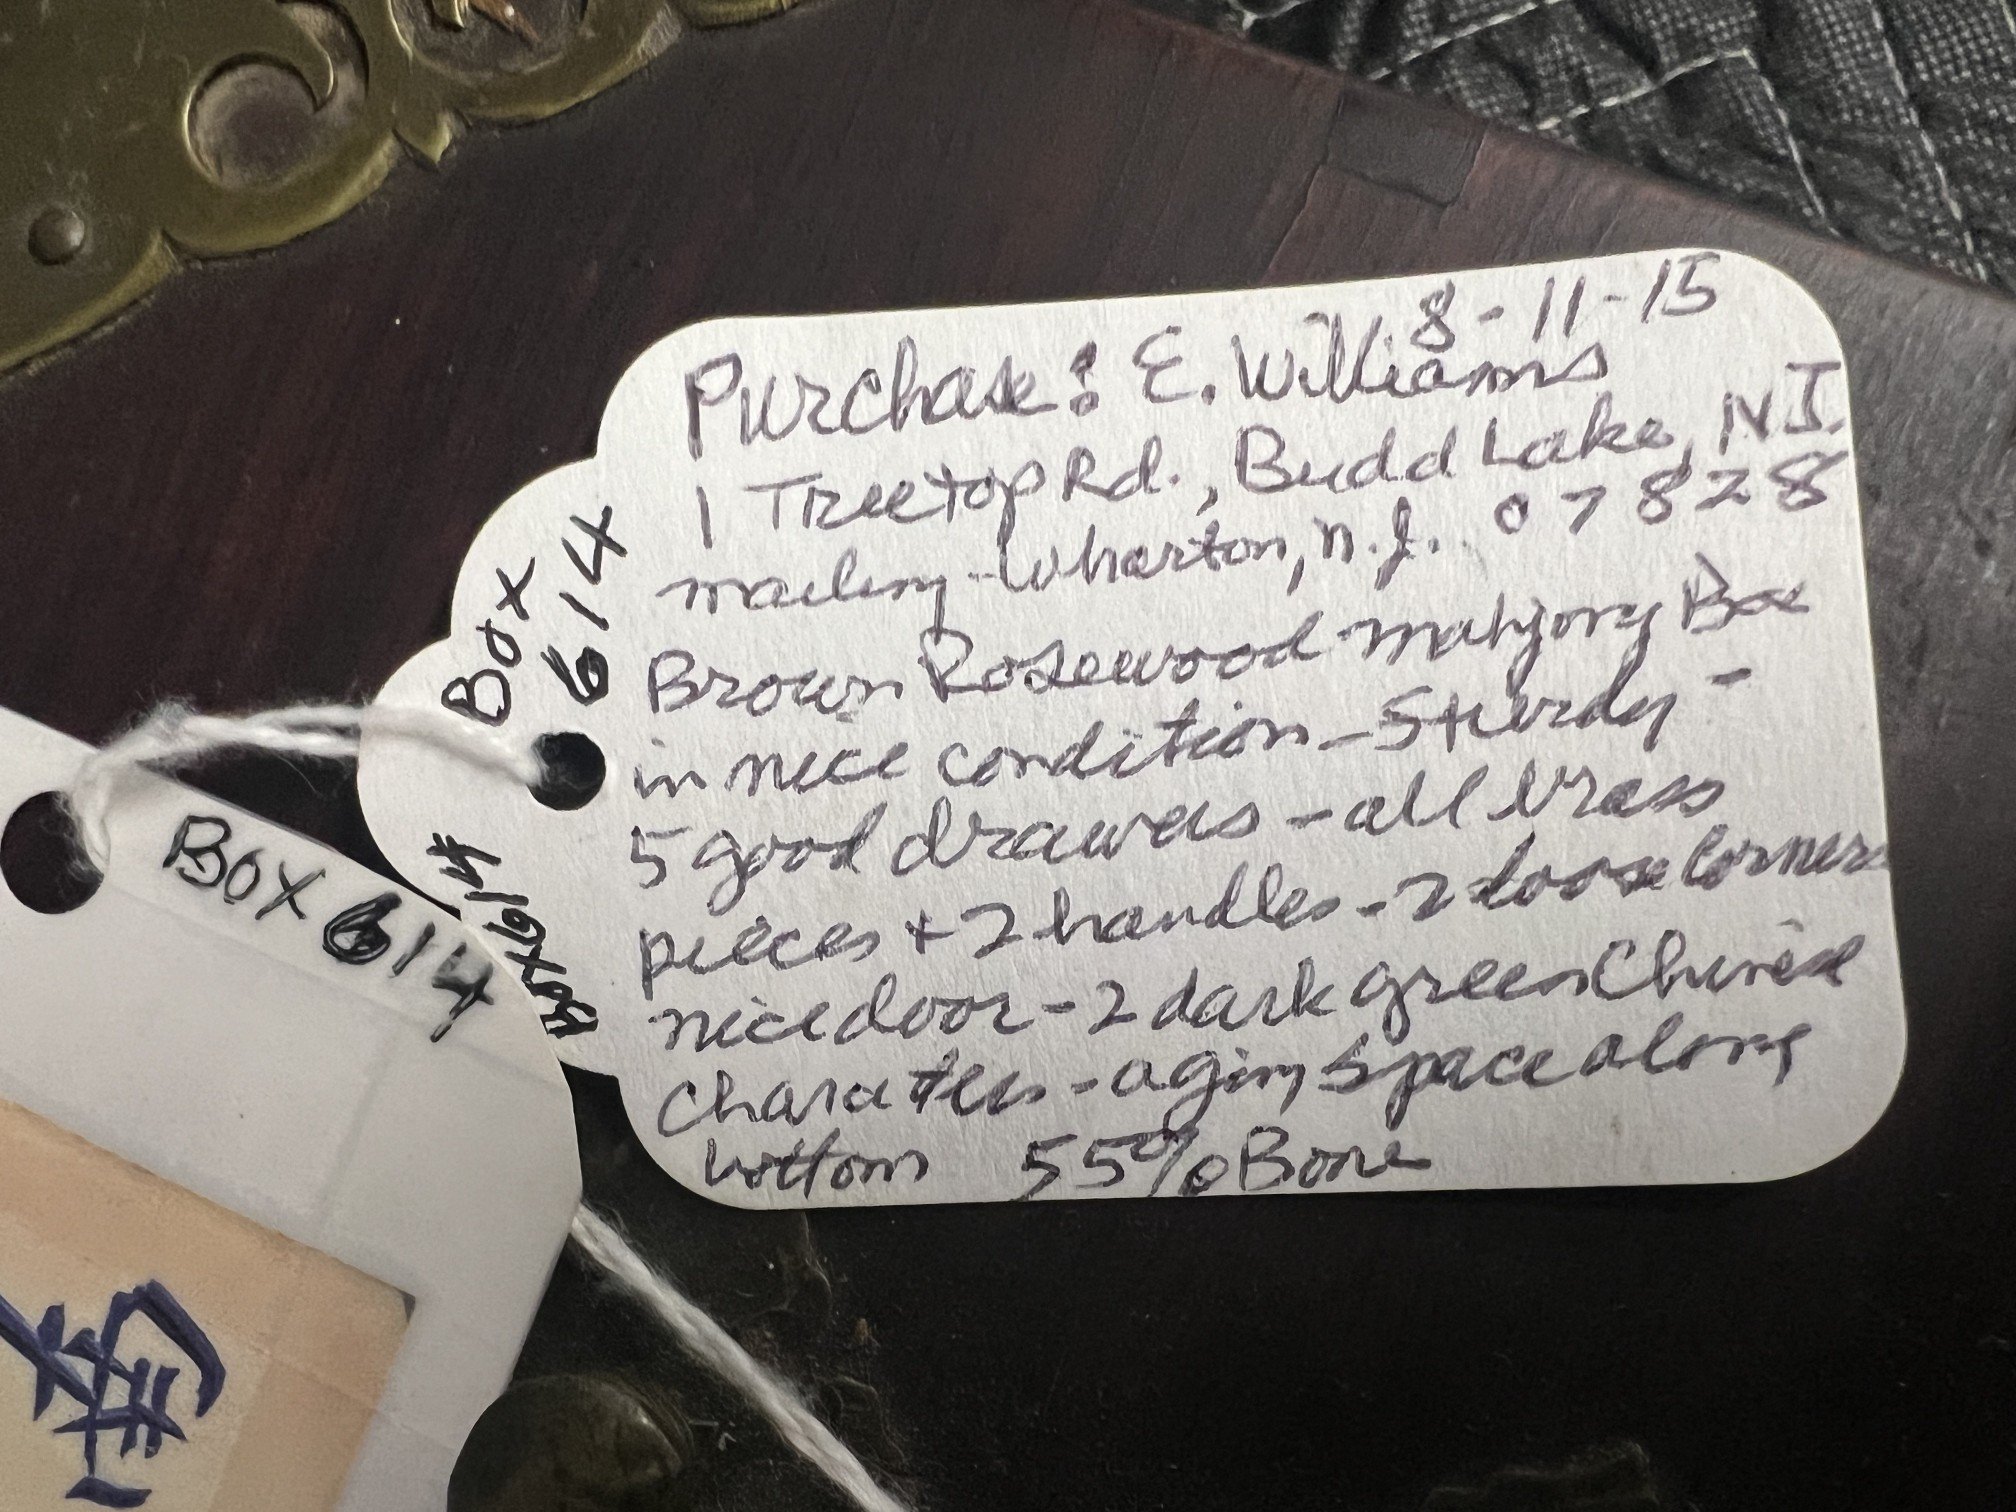 8-11-15
Purchase: E. Williams
1 Treetop Rd., Budd Lake, N.J.
mailing-Wharton, n.j. 07828
Brown Rosewood mahjong Box
in nice condition - Sturdy -
5 good drawers - all brass
pieces + 2 handles - 2 loose corners
nice door - 2 dark green Chinese
characters - aging space along
bottom 55% Bone
Box
614
Box 614
Box 614